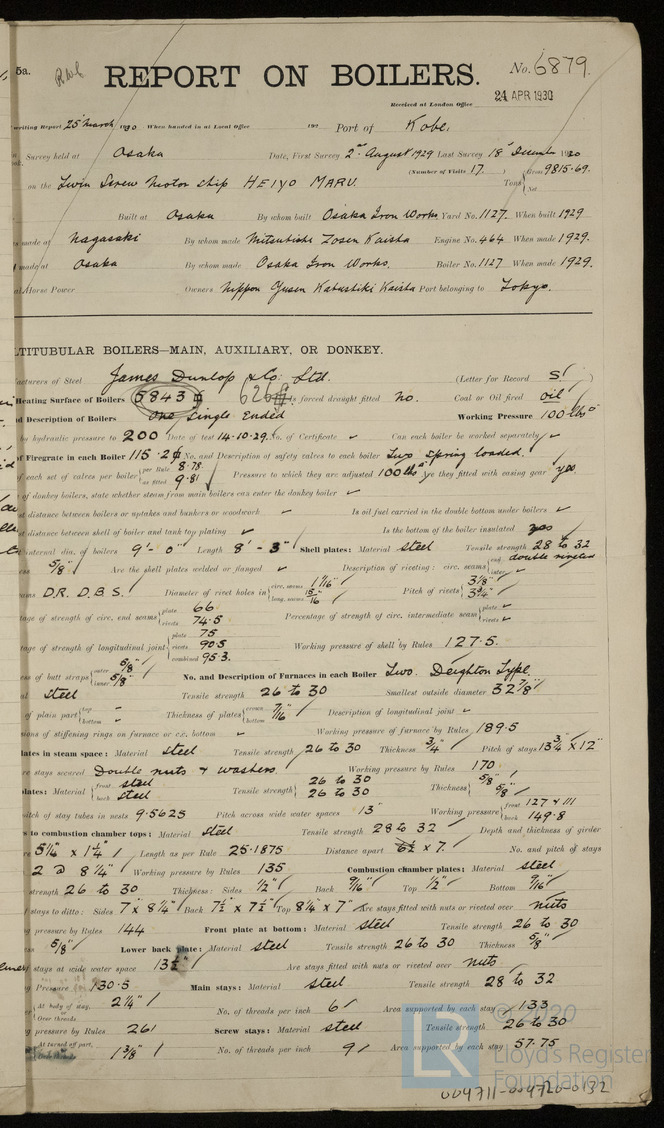 5a. REPORT ON BOILERS. No. 6879.
Received at London Office 24 APR 1930
writing Report 25 March 1930 When handed in at Local Office 192 Port of Kobe.
Survey held at Osaka Date, First Survey 2nd August 1929 Last Survey 18th December 1930
(Number of Visits 17.) Tons Gross 9815.69. Net
on the Twin Screw Motor Ship HEIYO MARU.
Built at Osaka By whom built Osaka Iron Works Yard No. 1127. When built 1929
made at Nagasaki By whom made Mitsubishi Zosen Kaisha Engine No. 464 When made 1929.
made at Osaka By whom made Osaka Iron Works. Boiler No. 1127 When made 1929.
Horse Power Owners Nippon Yusen Kabushiki Kaisha Port belonging to Tokyo.
LTITUBULAR BOILERS—MAIN, AUXILIARY, OR DONKEY.
facturers of Steel James Dunlop & Co. Ltd. (Letter for Record S)
Heating Surface of Boilers 5843 626 Is forced draught fitted No. Coal or Oil fired oil
nd Description of Boilers One Single Ended Working Pressure 100 lbs
by hydraulic pressure to 200 Date of test 14.10.29. No. of Certificate ✓ Can each boiler be worked separately ✓
of Firegrate in each Boiler 115.2 No. and Description of safety valves to each boiler Two Spring loaded.
of each set of valves per boiler per Rule 8.78 as fitted 9.81 Pressure to which they are adjusted 100 lbs Are they fitted with easing gear yes
of donkey boilers, state whether steam from main boilers can enter the donkey boiler ✓
st distance between boilers or uptakes and bunkers or woodwork ✓ Is oil fuel carried in the double bottom under boilers ✓
st distance between shell of boiler and tank top plating ✓ Is the bottom of the boiler insulated yes
internal dia. of boilers 9'-0" Length 8'-3" Shell plates: Material steel Tensile strength 28 to 32
5/8" Are the shell plates welded or flanged ✓ Description of riveting: circ. seams end double riveted inter. ✓
D.R. D.B.S. Diameter of rivet holes in circ. seams 1 1/16" long. seams 15/16" Pitch of rivets 3 1/8" 3 3/4"
age of strength of circ. end seams plate 66 rivets 74.5 Percentage of strength of circ. intermediate seam plate ✓ rivets ✓
age of strength of longitudinal joint plate 75 rivets 90.5 combined 95.3. Working pressure of shell by Rules 127.5.
ss of butt straps outer 5/8" inner 5/8" No. and Description of Furnaces in each Boiler Two. Deighton Type.
Steel Tensile strength 26 to 30 Smallest outside diameter 32 7/8"
of plain part top bottom Thickness of plates crown bottom 7/16" Description of longitudinal joint ✓
ions of stiffening rings on furnace or c.c. bottom ✓ Working pressure of furnace by Rules 189.5
lates in steam space: Material steel Tensile strength 26 to 30 Thickness 3/4" Pitch of stays 13 3/4 x 12"
re stays secured Double nuts & washers Working pressure by Rules 170
lates: Material front steel back steel Tensile strength 26 to 30 26 to 30 Thickness 5/8" 5/8"
itch of stay tubes in nests 9.5625 Pitch across wide water spaces 13" Working pressure front 127 & 111 back 149.8
s to combustion chamber tops: Material steel Tensile strength 28 to 32 Depth and thickness of girder
re 5 1/4" x 1 1/4" Length as per Rule 25.1875 Distance apart 6 1/2 x 7. No. and pitch of stays
2 @ 8 1/4" Working pressure by Rules 135 Combustion chamber plates: Material steel
strength 26 to 30 Thickness: Sides 1/2" Back 9/16" Top 1/2" Bottom 9/16"
stays to ditto: Sides 7" x 8 1/4" Back 7 1/2" x 7 1/2" Top 8 1/4 x 7" Are stays fitted with nuts or riveted over nuts
pressure by Rules 144 Front plate at bottom: Material steel Tensile strength 26 to 30
ss 5/8" Lower back plate: Material steel Tensile strength 26 to 30 Thickness 5/8"
stays at wide water space 13 1/2" Are stays fitted with nuts or riveted over nuts
Pressure 130.5 Main stays: Material steel Tensile strength 28 to 32
At body of stay, Over threads 2 1/4" No. of threads per inch 6 Area supported by each stay 133
pressure by Rules 261 Screw stays: Material steel Tensile strength 26 to 30
At turned off part, 1 3/8" No. of threads per inch 9 Area supported by each stay 57.75
© 2020
LR Lloyd's Register Foundation
004711-004720-0132